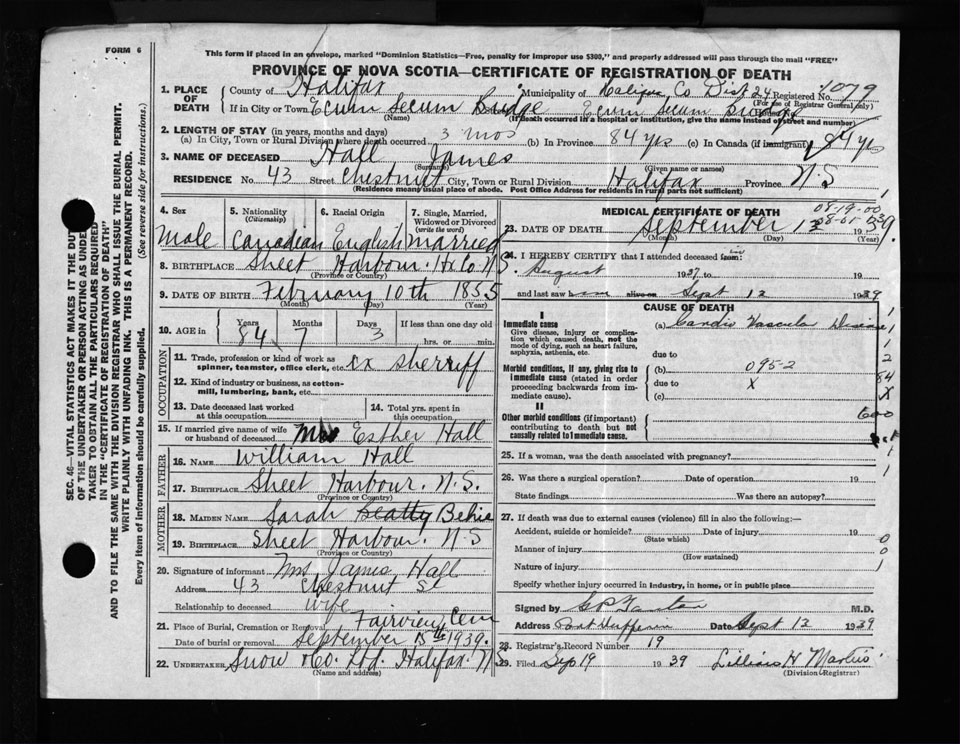 FORM 6
This form if placed in an envelope, marked "Dominion Statistics—Free, penalty for improper use $300," and properly addressed will pass through the mail "FREE"
PROVINCE OF NOVA SCOTIA—CERTIFICATE OF REGISTRATION OF DEATH
SEC. 46—VITAL STATISTICS ACT MAKES IT THE DUTY
OF THE UNDERTAKER OR PERSON ACTING AS UNDER-
TAKER TO OBTAIN ALL THE PARTICULARS REQUIRED
IN THE "CERTIFICATE OF REGISTRATION OF DEATH"
AND TO FILE THE SAME WITH THE DIVISION REGISTRAR WHO SHALL ISSUE THE BURIAL PERMIT.
WRITE PLAINLY WITH UNFADING INK. THIS IS A PERMANENT RECORD.
Every item of information should be carefully supplied. (See reverse side for instructions.)
1. PLACE OF DEATH
County of Halifax Municipality of Halifax Co Dist 24 Registered No. 1079
(For use of Registrar General only)
If in City or Town Ecum Secum Bridge Ecum Secum Bridge
(Name) (If death occurred in a hospital or institution, give the name instead of street and number)
2. LENGTH OF STAY (in years, months and days)
(a) In City, Town or Rural Division where death occurred 3 mos (b) In Province 84 yrs (c) In Canada (if immigrant) 84 yrs
3. NAME OF DECEASED Hall James
(Surname) (Given name or names)
RESIDENCE No. 43 Street Chestnut City, Town or Rural Division Halifax Province N.S
(Residence means usual place of abode. Post Office Address for residents in rural parts not sufficient)
4. Sex Male
5. Nationality (Citizenship) Canadian
6. Racial Origin English
7. Single, Married, Widowed or Divorced (write the word) married
8. BIRTHPLACE Sheet Harbour. Hx Co N.S.
(Province or Country)
9. DATE OF BIRTH February 10th 1855
(Month) (Day) (Year)
10. AGE in Years 84 Months 7 Days 3 If less than one day old hrs. or min.
OCCUPATION
11. Trade, profession or kind of work as spinner, teamster, office clerk, etc. ex sherriff
12. Kind of industry or business, as cotton-mill, lumbering, bank, etc.
13. Date deceased last worked at this occupation
14. Total yrs. spent in this occupation
15. If married give name of wife or husband of deceased Mrs Esther Hall
FATHER
16. NAME William Hall
17. BIRTHPLACE Sheet Harbour. N.S.
(Province or Country)
MOTHER
18. MAIDEN NAME Sarah Beatty Behie
19. BIRTHPLACE Sheet Harbour. N.S
(Province or Country)
20. Signature of informant Mrs James Hall
Address 43 Chestnut St
Relationship to deceased wife
21. Place of Burial, Cremation or Removal Fairview Cem
Date of burial or removal September 15th 1939.
22. UNDERTAKER Snow & Co. Ltd. Halifax. N.S
(Name and address)
MEDICAL CERTIFICATE OF DEATH
08-19-00
23. DATE OF DEATH September 13 1939.
(Month) (Day) (Year)
24. I HEREBY CERTIFY that I attended deceased from:
August 1937 to 19
and last saw him alive on Sept 12 1939
CAUSE OF DEATH
I
Immediate cause
Give disease, injury or complication which caused death, not the mode of dying, such as heart failure, asphyxia, asthenia, etc.
(a) Cardio Vascular Disease
due to
Morbid conditions, if any, giving rise to immediate cause (stated in order proceeding backwards from immediate cause).
(b) 095-2
due to X
(c)
II
Other morbid conditions (if important) contributing to death but not causally related to immediate cause.
600
25. If a woman, was the death associated with pregnancy?
26. Was there a surgical operation? Date of operation 19
State findings Was there an autopsy?
27. If death was due to external causes (violence) fill in also the following:—
Accident, suicide or homicide? Date of injury 19
(State which)
Manner of injury
(How sustained)
Nature of injury
Specify whether injury occurred in industry, in home, or in public place
Signed by M.D.
Address Port Dufferin Date Sept 13 1939
28. Registrar's Record Number 19
29. Filed Sep 19 1939 Lillian H
(Division Registrar)